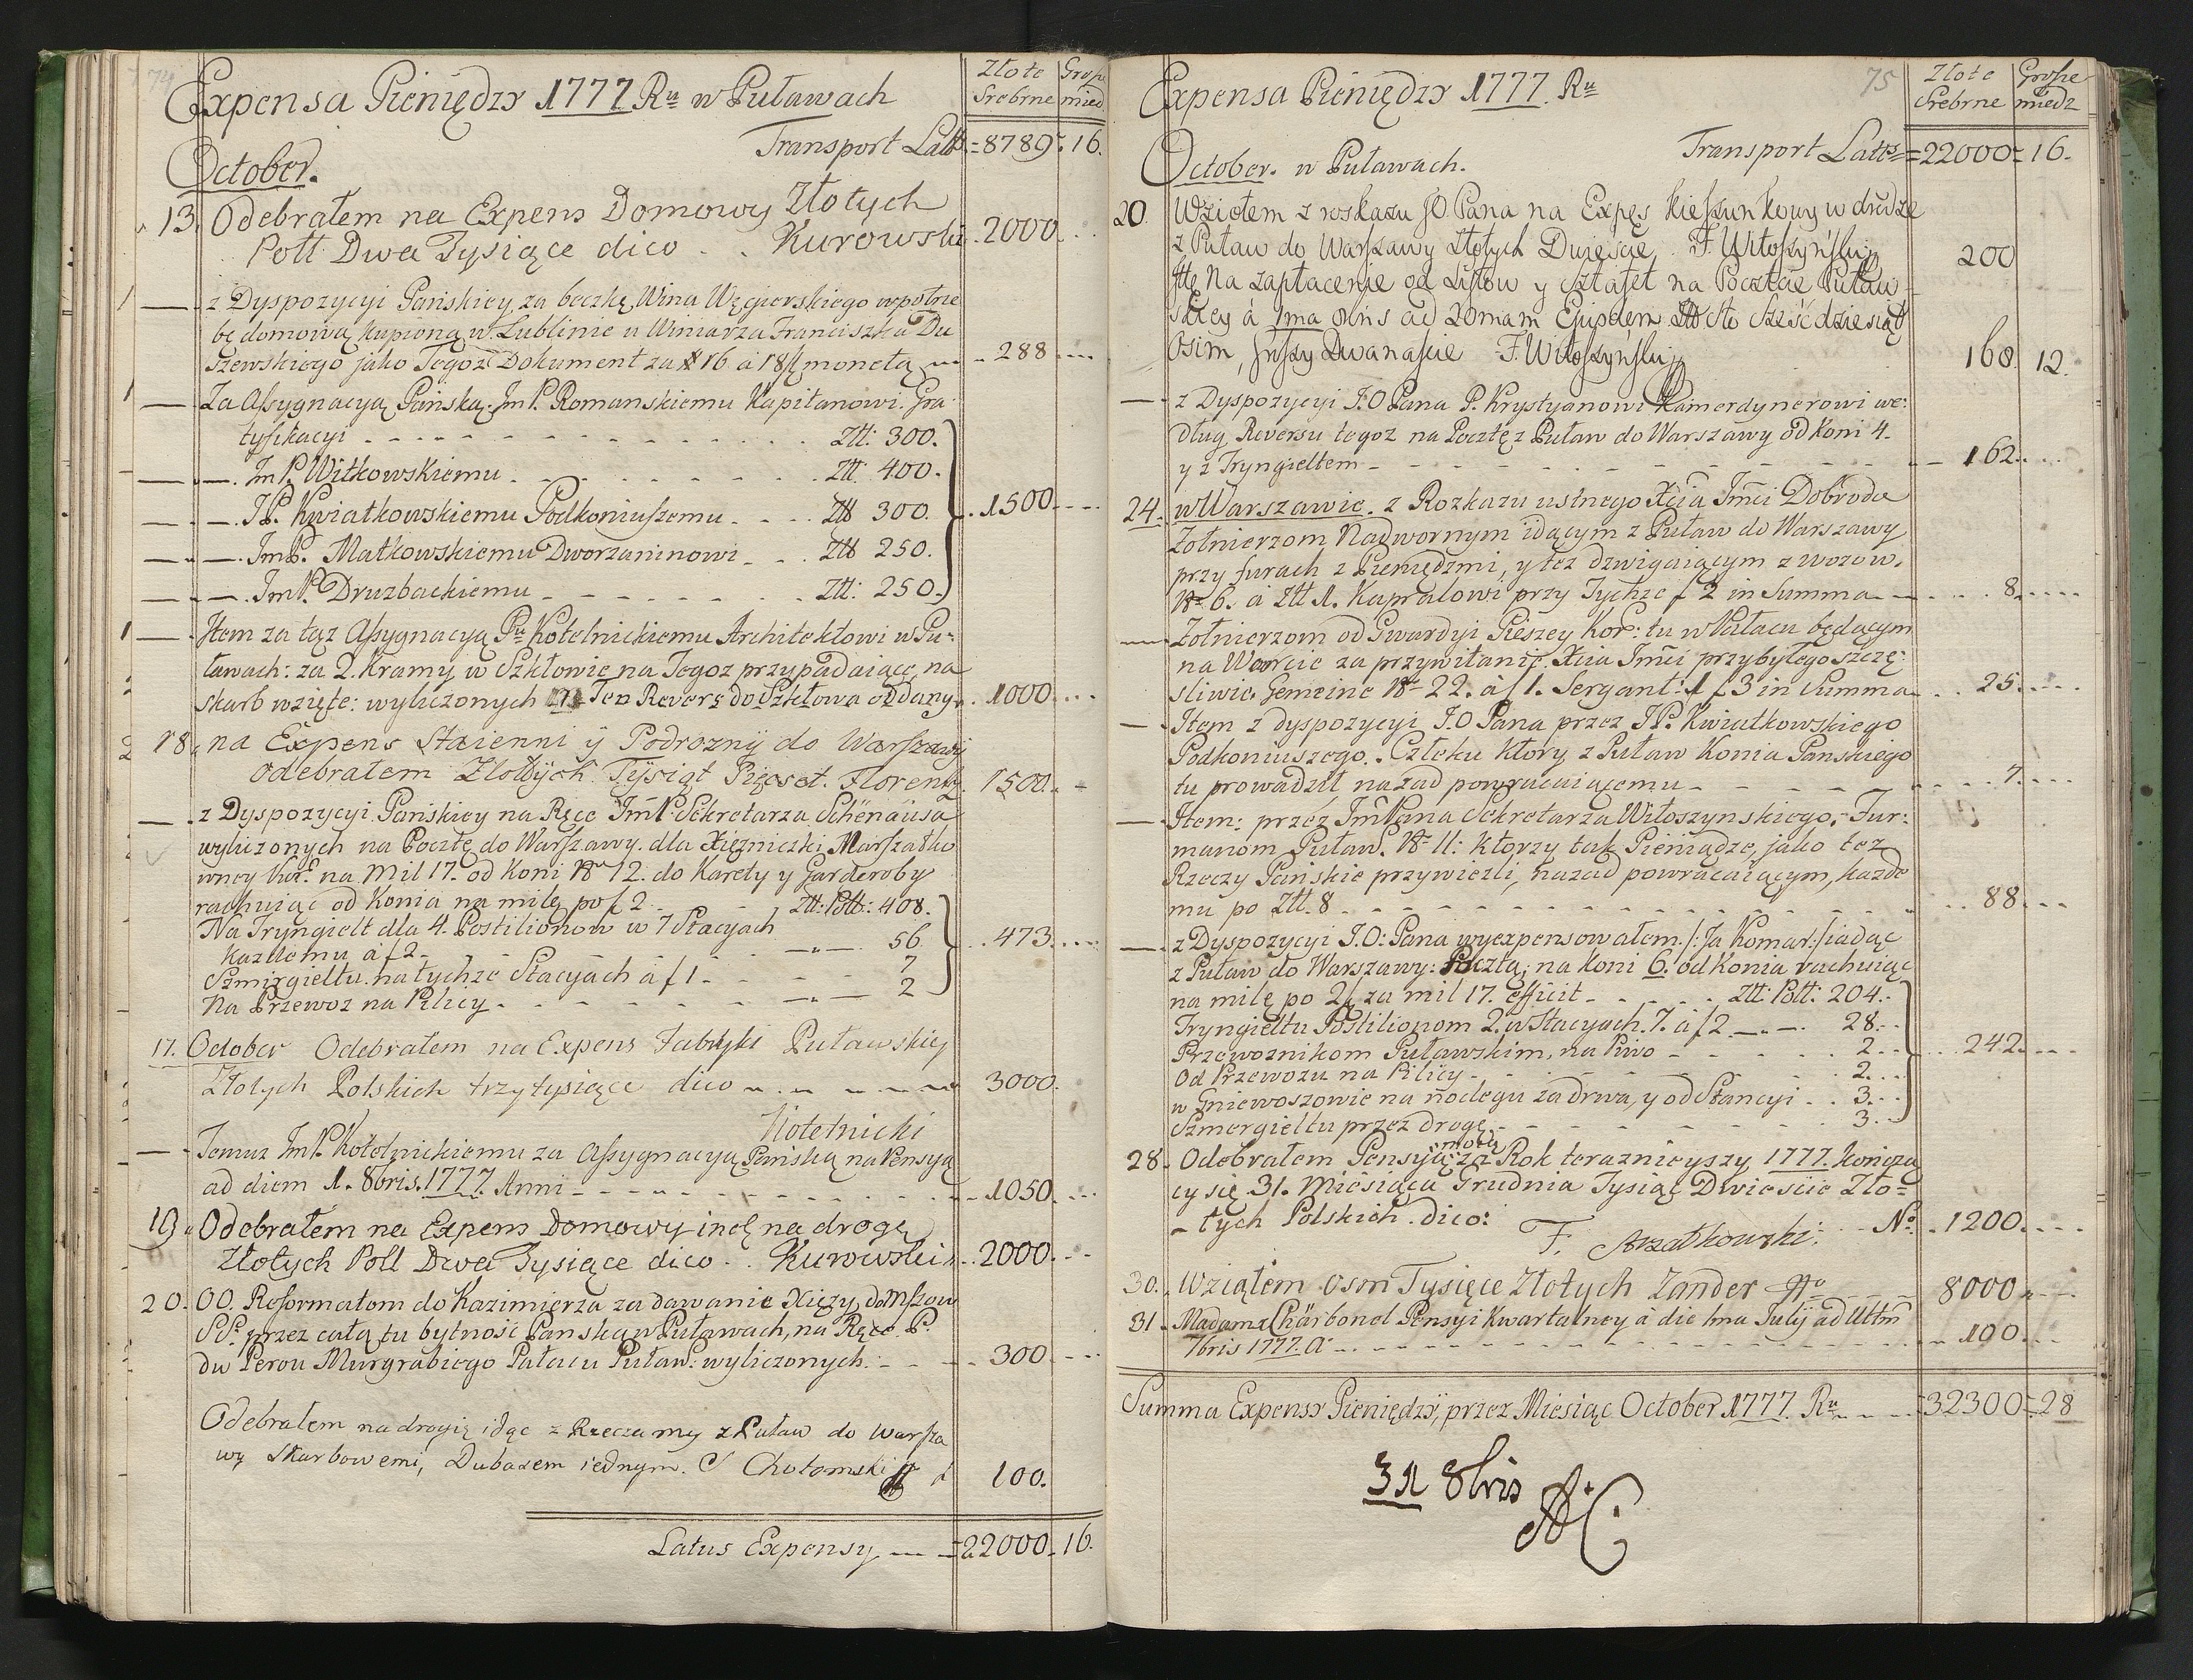 74
Expensa Pieniędzy 1777 Ru w Puławach
Złote Grosze
Srebrne mied
Transport Latts = 8789 = 16.
October.
13. Odebrałem na Expens Domowy Złotych
Poll Dwa Tysiące dico . . Kurowski . 2000 . .
— z Dyspozycyi Pańskiey za beczkę Wina Węgierskiego wpołrie
bę domową kupioną w Lublinie u Winiarza Franciszka Du
szewskiego jako Tegoż Dokument za # 16 a 18 f monetą — 288 . . .
— Za Assygnacyą Pańską. Jm P. Romanskiemu Kapitanowi Gra
tyfikacyi - - - - Ztt: 300.
— — . Jm P. Witkowskiemu - - - - Ztt: 400.
— — . JP. Kwiatkowskiemu Podkoniuszemu - - Ztt 300. . 1500 . . .
— — . JmP. Matkowskiemu Dworzaninowi - - Ztt 250.
— — . JmP. Druzbackiemu - - - - Ztt: 250.
— Item za tąż Assygnacyą Pu Kotelnickiemu Architektowi w Pu=
ławach: za 2. Kramy w Szkłowie na Tegoz przypadaiące, na
skarb wzięte: wyliczonych Ten Revers do Szkłowa oddany . 1000 . . .
18. na Expens Staienni ÿ Podroznÿ do Warszawÿ
odebrałem Złotÿch Tÿsiąt Pięcset. Floreny . 1500. . -
— z Dyspozycyi Pańskiey na Ręce JmP. Sekretarza Schënaüsa
wyliczonych na Pocztę do Warszawy. dla Xiężniczki Marszałko
wney Kor: na Mil 17. od Koni No 12. do Karety y Garderoby
rachuiąc od Konia na milę po f 2 - - Ztt: Poll: 408.
Na Tryngielt dla 4. Postilionow w 7 Stacyach
Kazdemu á f 2 - - - - 56 . . 473 . . .
Szmirgieltu na tychże Stacyach á f 1 - - - 7
Na Przewoz na Pilicy - - - - 2
17. October Odebrałem na Expens Fabryki Puławskiey
Złotych Polskich trzy tysiące dico 3000.
Kotelnicki
— Temuz JmP. Kotelnickiemu za Assygnacyą Pańską na Pensyą
ad diem 1. 8bris. 1777. Anni - - - - 1050 . . .
19. Odebrałem na Expens Domowy incl na drogę
Złotych Poll Dwa Tysiące dico . . Kurowski . 2000 . . .
20. OO. Reformatom do Kazimierza za dawanie Xięży do Mszow
SS. przez całą tu bytność Pańską w Puławach, na Ręce P.
du Perou Murgrabiego Pałacu Puław: wyliczonych - - . 300 . . .
Odebrałem na drogię idąc z Rzeczamy z Puław do Warsza
wy Skarbowemi, Dubasem iednym. S Chotomski 100.
Latus Expensy = 22000. 16.
75
Expensa Pieniędzy 1777. Ru
Złote Grosze
Srebrne miedz
October. w Puławach. Transport Latts = 22000 = 16.
20. Wziołem z roskazu JO Pana na Expęs kieszunkowy w drodze
z Puław do Warszawy złotych Dwieście . F. Witoszyński 200
Itẽ Na zapłacenie od Listow y Sztafet na Poczcie Puław
skiey á 1ma 8bris ad 20mam Ejusdem Ztt Sto Sześcdziesiąt
Osim, Groszy Dwanascie F. Witoszyński 168 12.
— z Dyspozycyi J.O Pana P. Krystyanowi Kamerdynerowi we:
dług Reversu tegoz na Pocztę z Puław do Warszawy od Koni 4.
y z Tryngieltem - - - - 162. . . .
24. w Warszawie. z Rozkazu ustnego Xcia Jmci Dobrodz
Żołnierzom Nadwornym idącym z Puław do Warszawy
przy furach z Pieniędzmi, y też dzwigaiącym z wozow,
No 6. á Ztt 1. Kapralowi przy Tychże f 2 in Summa - . . 8. . . .
— Żołnierzom od Gwardyi Pieszey Kor: tu w Pałacu będącym
na Warcie za przywitanie Xcia Jmci przybyłego szczę:
śliwie. Gemeine No 22. á f 1. Sergant: 1 f 3 in Summa . . 25. . . .
— Item z dyspozycyi J.O Pana przez JP. Kwiatkowskiego
Podkoniuszego. Człeku ktory z Puław Konia Panskiego
tu prowadził nazad powracaiącemu - - - . . 7. . . .
— Item: przez JmPana Sekretarza Witoszynskiego. Fur:
manom Puław. No 11: ktorzy tak Pieniądze, jako też
Rzeczy Pańskie przywiezli, nazad powracaiącym, każde
mu po Ztt. 8 - - - - . . 88. . .
— z Dyspozycyi J.O: Pana wyexpensowałem /: Ja Komar: / iadąc
z Puław do Warszawy: Pocztą, na koni 6. od Konia rachuiąc
na milę po 2 f za mil 17. efficit - - - Ztt: Poll: 204.
Tryngieltu Postilionom 2. w Stacyach. 7. á f 2 - - 28. .
Przewoznikom Puławskim, na Piwo - - - 2. . . . 242. . . .
Od Przewozu na Pilicy - - - 2. . .
w Gniewoszowie na noclegu za drwa, y od Stancyi . . 3. . .
Szmergieltu przez drogę - - - 3. .
28. Odebrałem Pensyą moią za Rok teraznieyszy 1777. Kończą
cy się 31. Miesiąca Grudnia Tysiąc Dwieście Zło=
- tych Polskich. dico: No . 1200. . . .
F.
30. Wziąłem osm Tysięce Złotych Zander 8000 . . .
31. Madame Chärbonel Pensyi Kwartalney á die 1ma Julÿ ad Ultm
7bris 1777. A: - - - - 100 . . .
Summa Expensy Pieniędzy, przez Miesiąc October 1777. Ru - - = 32300 = 28
31 8bris
AC.